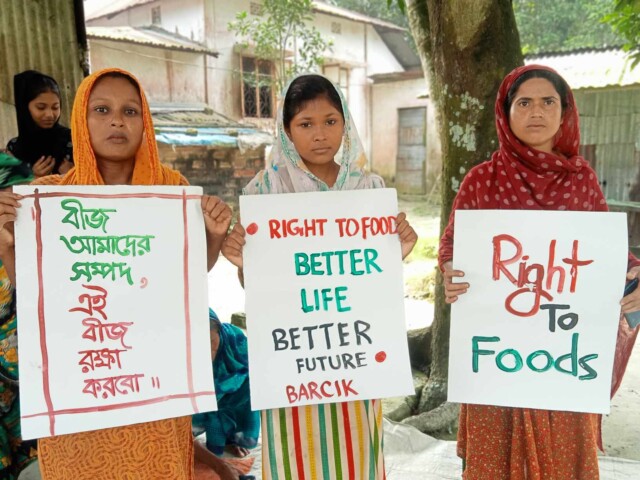 বীজ
আমাদের
সম্পদ,
এই
বীজ
রক্ষা
করবো ॥
RIGHT TO FOOD
BETTER
LIFE
BETTER
FUTURE
BARCIK
Right
To
Foods